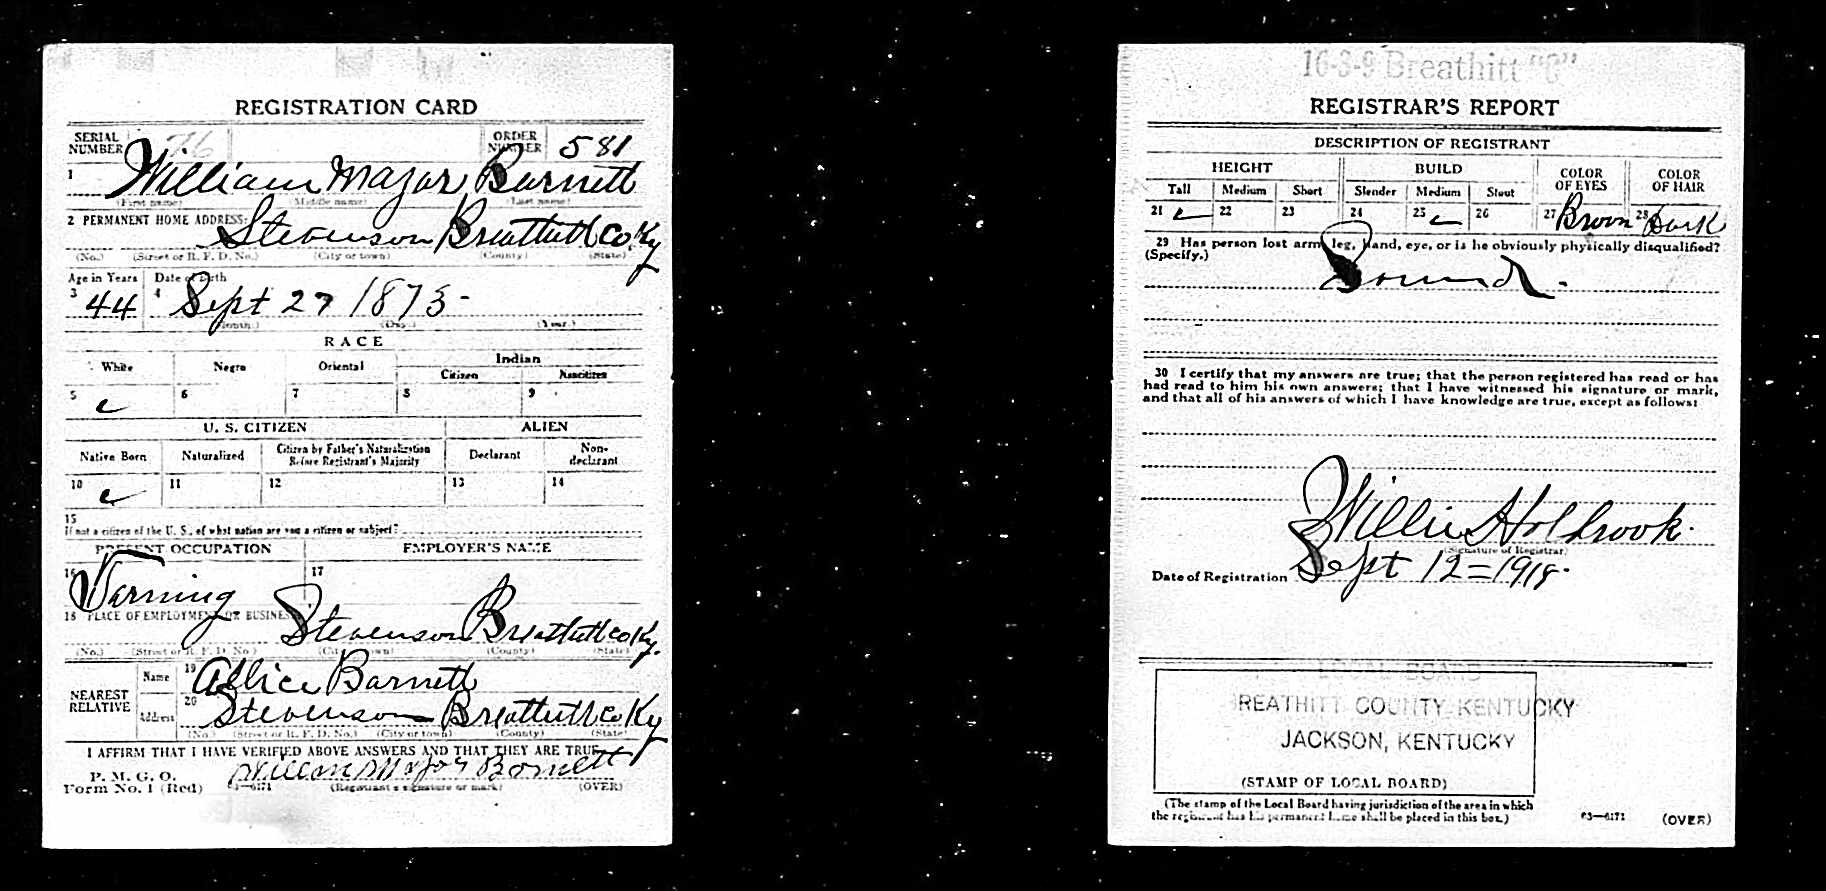 REGISTRATION CARD
SERIAL NUMBER 76 ORDER NUMBER 581
1 William Major Barnett
(First name) (Middle name) (Last name)
2 PERMANENT HOME ADDRESS:
Stevenson Breathitt Co Ky
(No.) (Street or R. F. D. No.) (City or town) (County) (State)
Age in Years Date of Birth
3 44 4 Sept 27 1873-
(Month.) (Day.) (Year.)
RACE
White Negro Oriental Indian
Citizen Noncitizen
5 6 7 8 9
U. S. CITIZEN ALIEN
Native Born Naturalized Citizen by Father's Naturalization Before Registrant's Majority Declarant Non-declarant
10 11 12 13 14
15
If not a citizen of the U. S., of what nation are you a citizen or subject?
PRESENT OCCUPATION EMPLOYER'S NAME
16 Farming 17
18 PLACE OF EMPLOYMENT OR BUSINESS
Stevenson Breathitt Co Ky.
(No.) (Street or R. F. D. No.) (City or town) (County) (State)
NEAREST RELATIVE Name 19 Allice Barnett
Address 20 Stevenson Breathitt Co Ky
(No.) (Street or R. F. D. No.) (City or town) (County) (State)
I AFFIRM THAT I HAVE VERIFIED ABOVE ANSWERS AND THAT THEY ARE TRUE
P. M. G. O.
Form No. 1 (Red) 03—6171 William Major Barnett
(Registrant's signature or mark) (OVER)
16-3-9 Breathitt "C"
REGISTRAR'S REPORT
DESCRIPTION OF REGISTRANT
HEIGHT BUILD COLOR OF EYES COLOR OF HAIR
Tall Medium Short Slender Medium Stout
21 22 23 24 25 26 27 Brown 28 Dark
29 Has person lost arm, leg, hand, eye, or is he obviously physically disqualified?
(Specify.)
Sound.
30 I certify that my answers are true; that the person registered has read or has
had read to him his own answers; that I have witnessed his signature or mark,
and that all of his answers of which I have knowledge are true, except as follows:
Willie Holbrook.
(Signature of Registrar)
Date of Registration Sept 12=1918.
LOCAL BOARD
REATHITT COUNTY KENTUCKY
JACKSON, KENTUCKY
(STAMP OF LOCAL BOARD)
(The stamp of the Local Board having jurisdiction of the area in which
the registrant has his permanent home shall be placed in this box.)
03—6171 (OVER)